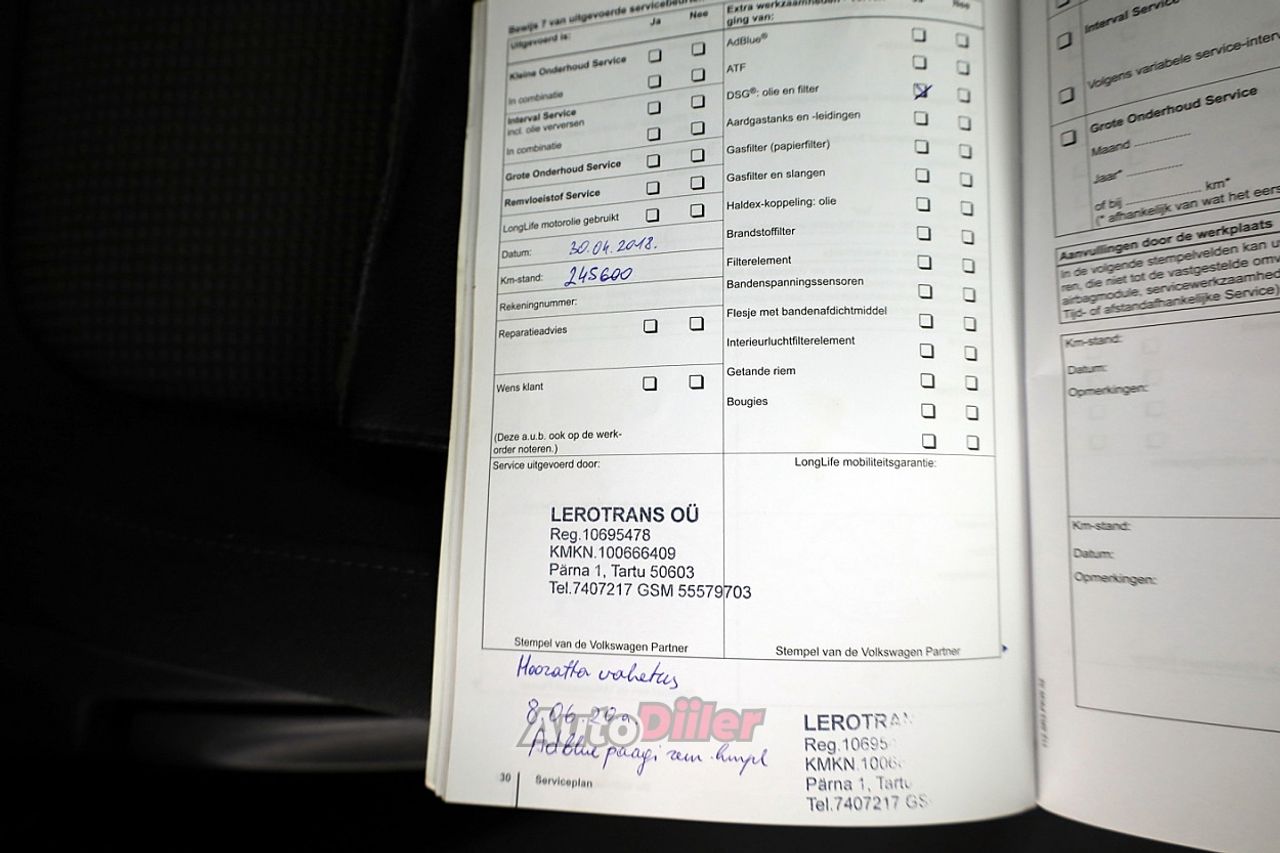 Bewijs 7 van uitgevoerde servicebeurten
Uitgevoerd is:
Ja
Nee
Kleine Onderhoud Service
In combinatie
Interval Service
incl. olie verversen
In combinatie
Grote Onderhoud Service
Remvloeistof Service
LongLife motorolie gebruikt
Datum: 30.04.2018.
Km-stand: 245600
Rekeningnummer:
Reparatieadvies
Wens klant
(Deze a.u.b. ook op de werk-
order noteren.)
Extra werkzaamheden
ging van:
Nee
AdBlue®
ATF
DSG®: olie en filter
Aardgastanks en -leidingen
Gasfilter (papierfilter)
Gasfilter en slangen
Haldex-koppeling: olie
Brandstoffilter
Filterelement
Bandenspanningssensoren
Flesje met bandenafdichtmiddel
Interieurluchtfilterelement
Getande riem
Bougies
Service uitgevoerd door:
LEROTRANS OÜ
Reg.10695478
KMKN.100666409
Pärna 1, Tartu 50603
Tel.7407217 GSM 55579703
Stempel van de Volkswagen Partner
LongLife mobiliteitsgarantie:
Stempel van de Volkswagen Partner
Hooratta vahetus
8.06.20a.
AutoDiiler
Adblue paagi rem. kmpl
LEROTRAN
Reg.10695
KMKN.1006
Pärna 1, Tartu
Tel.7407217 GS
30 Serviceplan
Interval Service
Volgens variabele service-inter
Grote Onderhoud Service
Maand
Jaar*
of bij km*
(* afhankelijk van wat het eers
Aanvullingen door de werkplaats
In de volgende stempelvelden kan u
ren, die niet tot de vastgestelde omv
airbagmodule, servicewerkzaamhed
Tijd- of afstandafhankelijke Service)
Km-stand:
Datum:
Opmerkingen:
Km-stand:
Datum:
Opmerkingen: